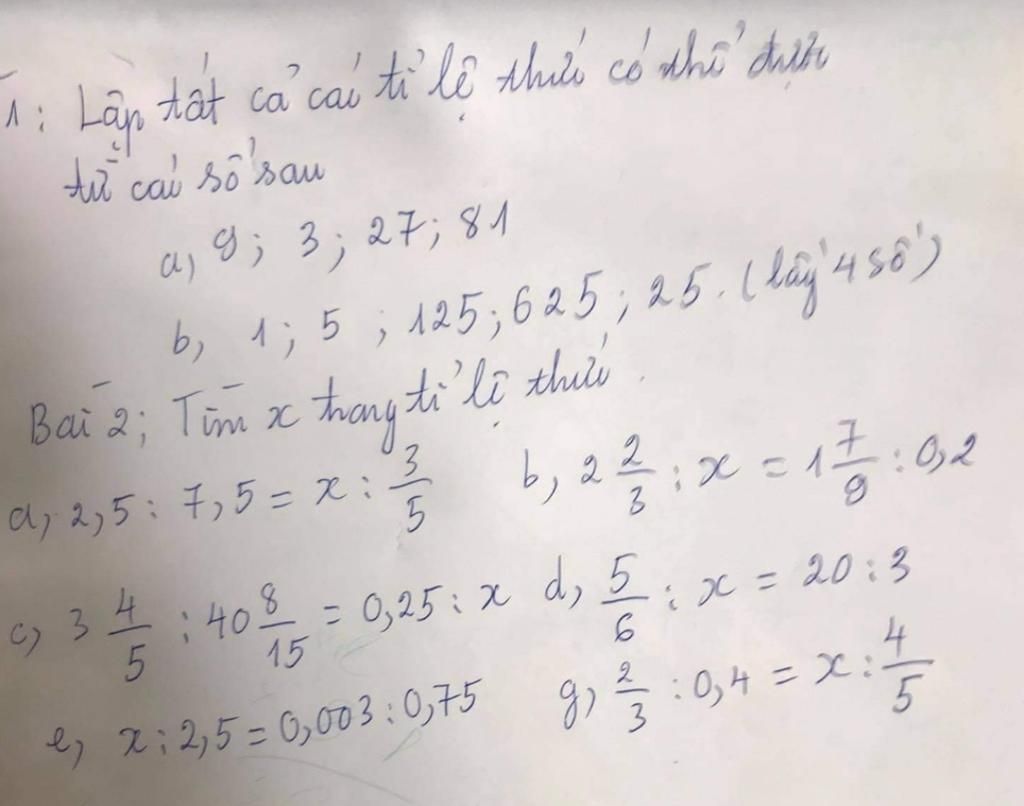 1: Lập tất cả các tỉ lệ thức có thể được
từ các số sau
a, 9; 3; 27; 81
b, 1; 5; 125; 625; 25. (lấy 4 số)
Bài 2; Tìm x trong tỉ lệ thức.
a, 2,5 : 7,5 = x : 3/5 b, 2 2/3 : x = 1 7/9 : 0,2
c, 3 4/5 : 40 8/15 = 0,25 : x d, 5/6 : x = 20 : 3
e, x : 2,5 = 0,003 : 0,75 g, 2/3 : 0,4 = x : 4/5